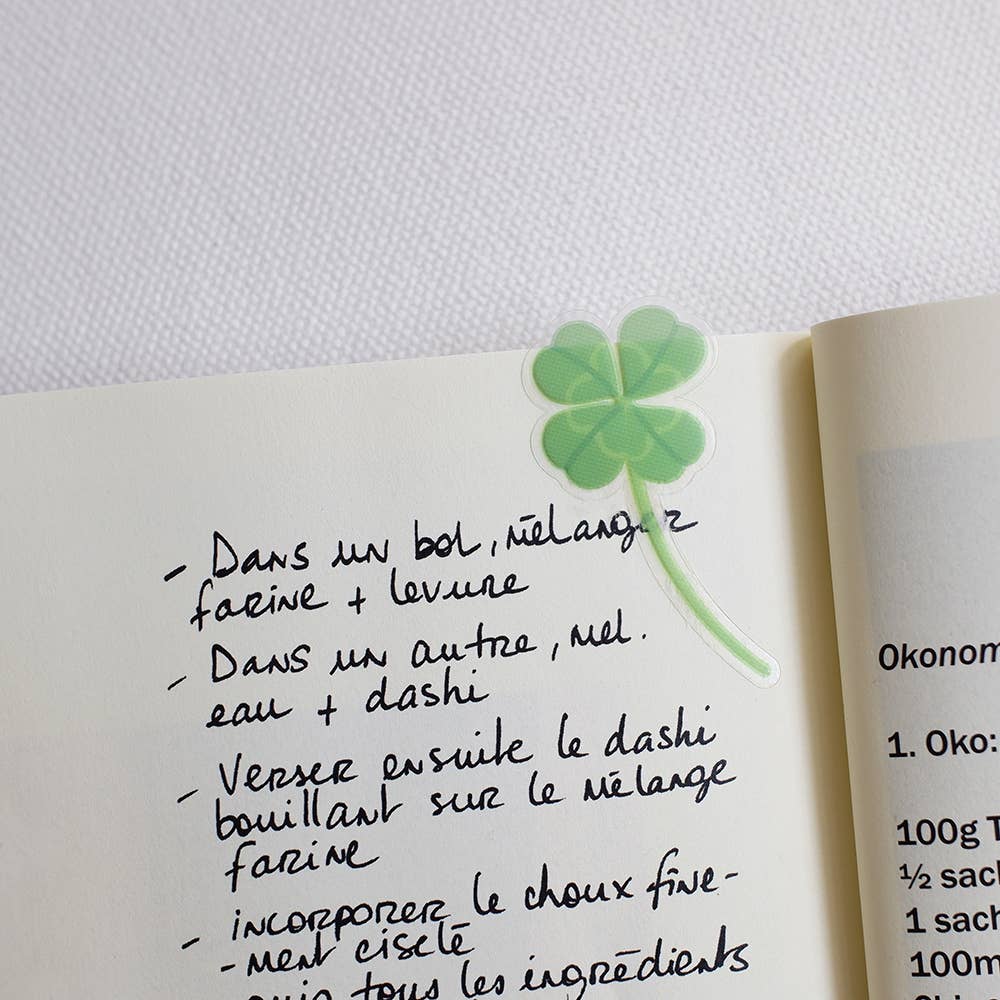 - Dans un bol, mélanger
farine + levure
- Dans un autre, mel.
eau + dashi
- Verser ensuite le dashi
bouillant sur le mélange
farine
- incorporer le choux fine-
-ment ciselé
puis tous les ingrédients
Okonom
1. Oko:
100g T
½ sach
1 sach
100m